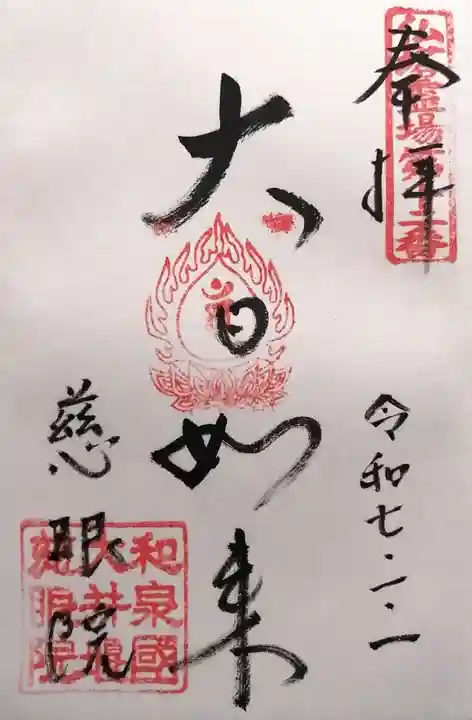 奉拝
令和七・一・一
大日如来
慈眼院
和泉國
大井堰
慈眼院